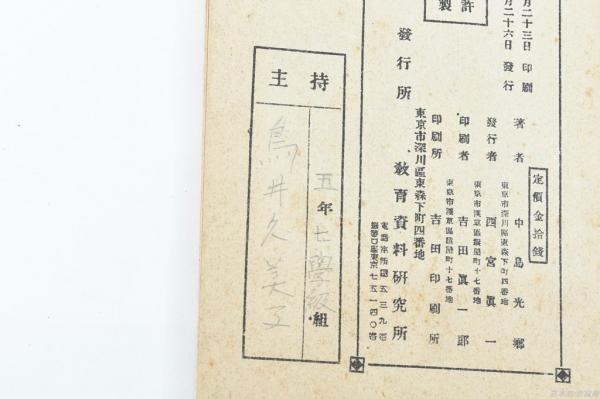 許
製
月二十三日 印刷
月二十六日 發行
定價金拾錢
著者 中島光郷
東京市深川區東森下町四番地
發行者 西宮眞一
東京市淺草區
町十七番地
印刷者 吉田眞一郎
東京市淺草區
町十七番地
印刷所 吉田印刷所
東京市深川區東森下町四番地
發行所 教育資料研究所
電話本所
五三九
番
東京七五一四〇番
持主
五年七學級組
鳥井久美子